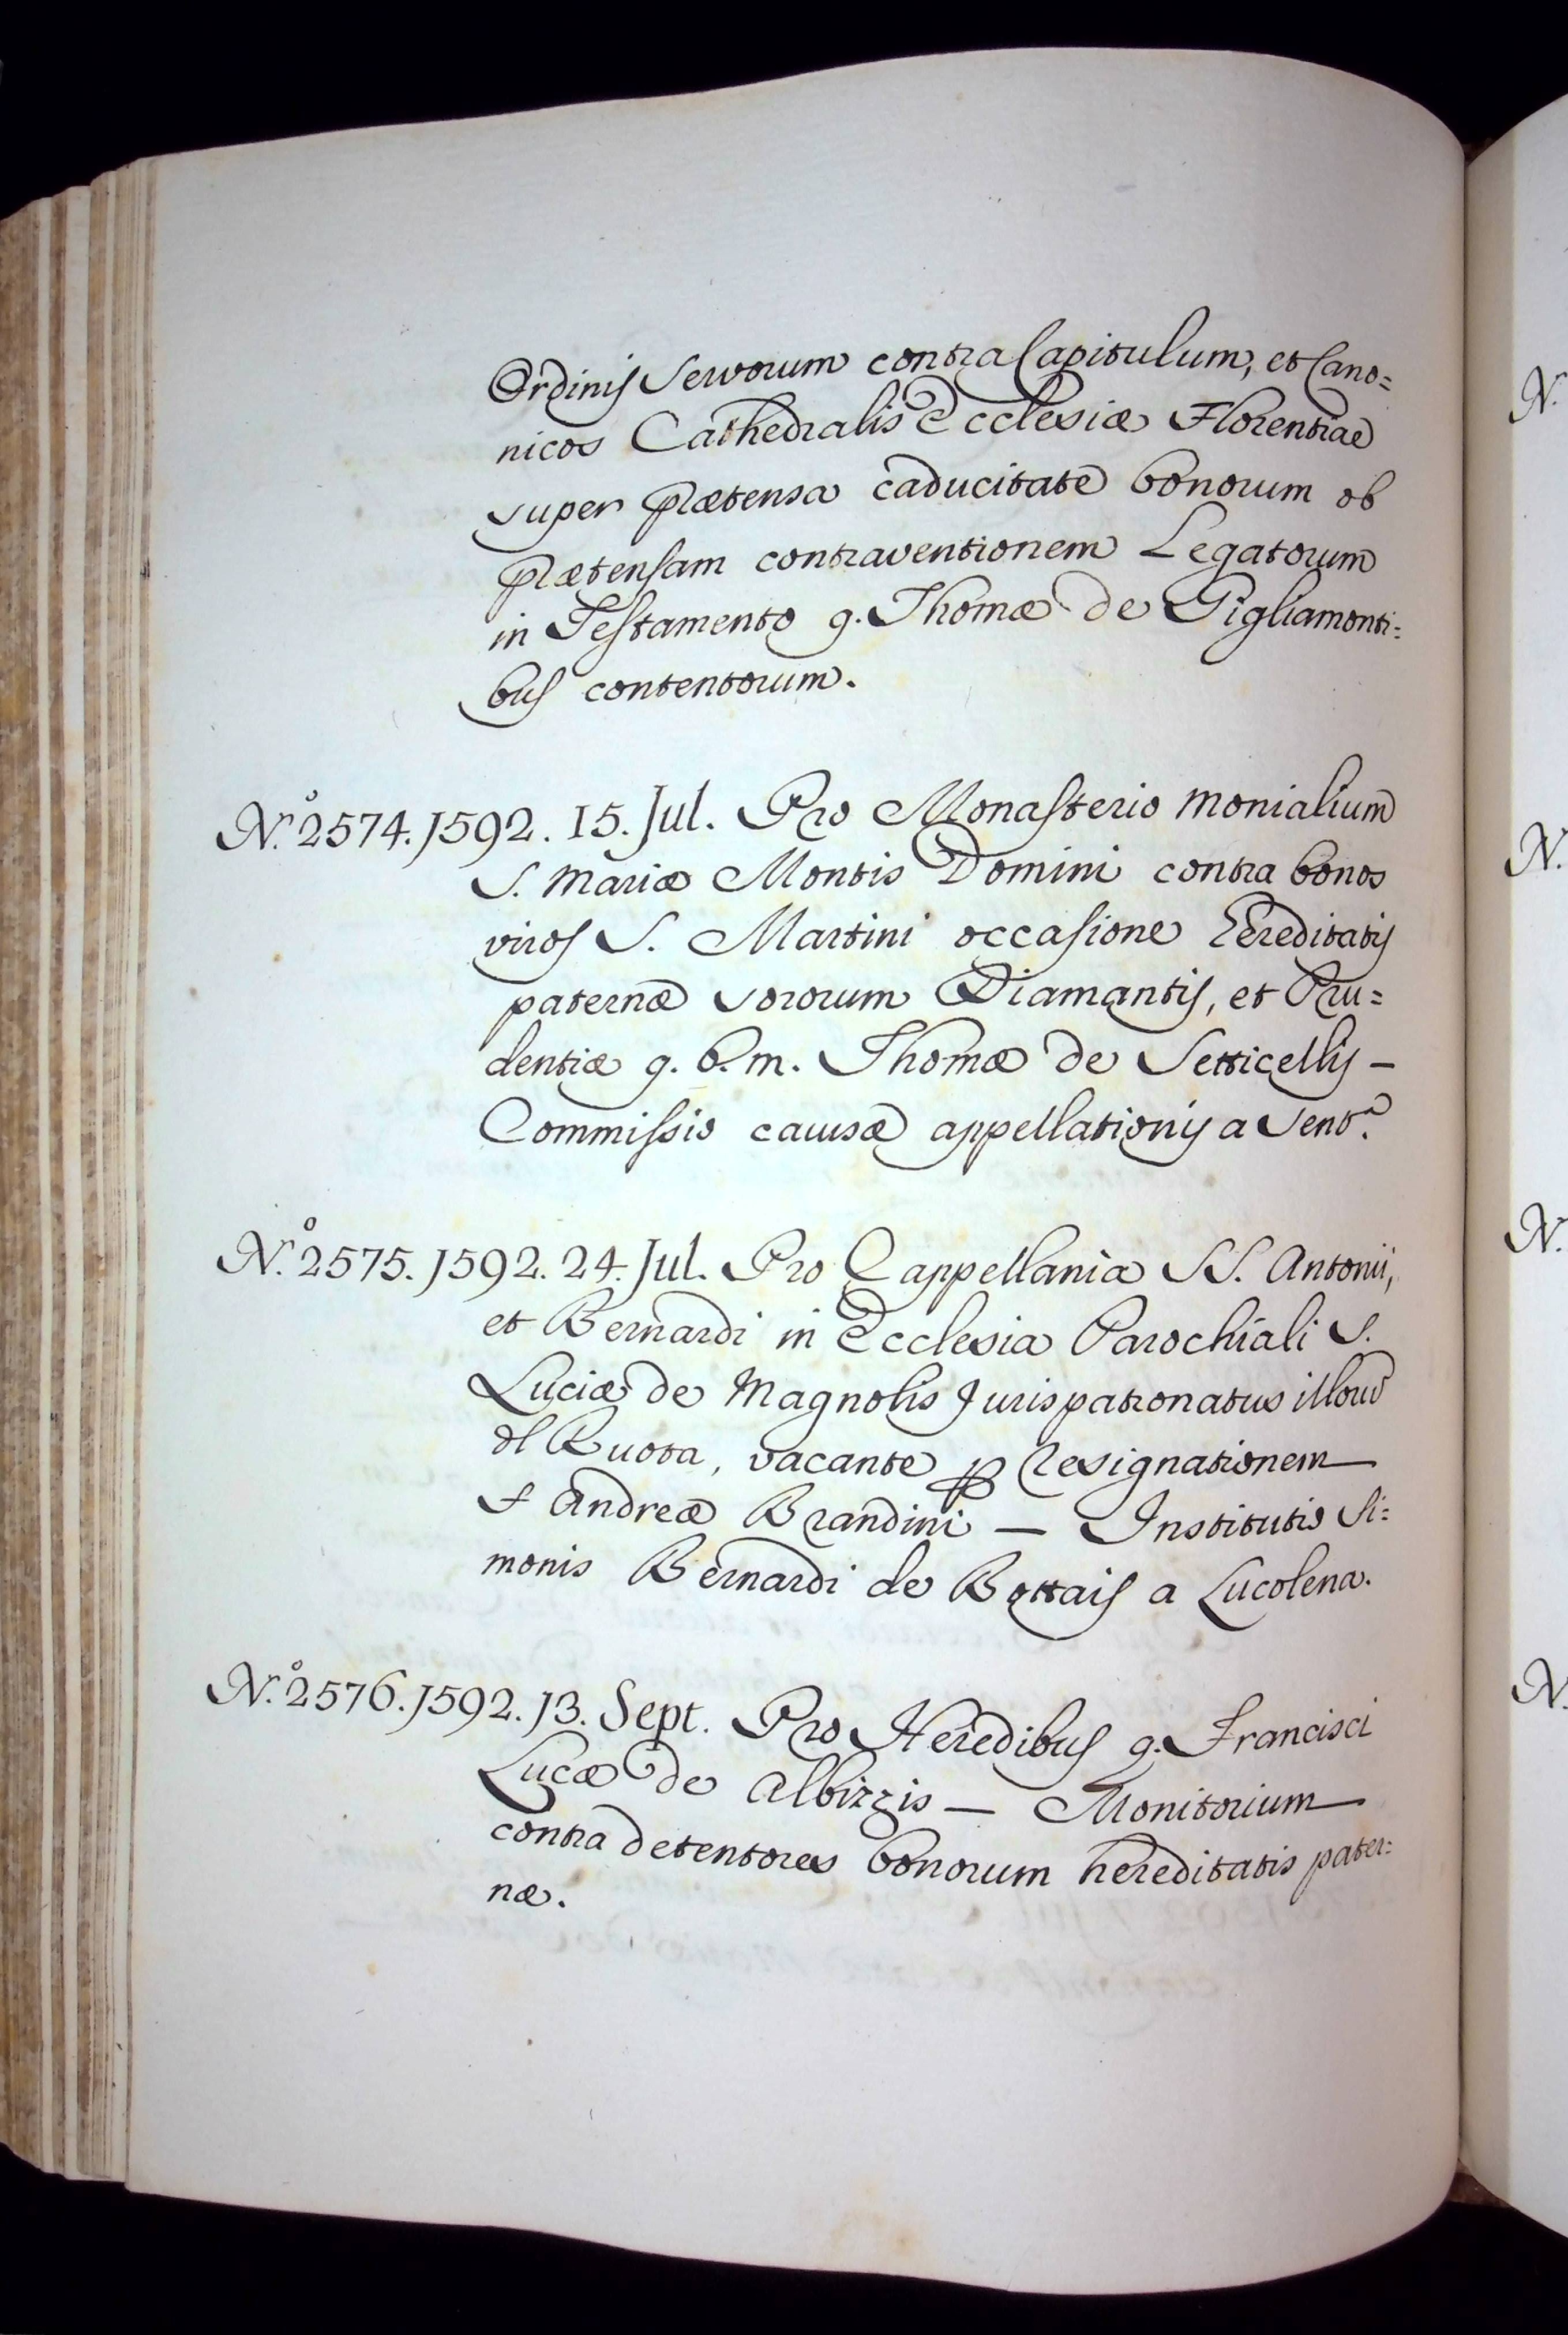 Ordinis Servorum contra Capitulum, et Cano=
nicos Cathedralis Ecclesiæ Florentiae
super prætensa caducitate bonorum ob
prætensam contraventionem Legatorum
in Testamento q. Thomæ de Gigliamonti=
bus contentorum.
N.º 2574. 1592. 15. Jul. Pro Monasterio Monialium
S. Mariæ Montis Domini contra bonos
viros S. Martini occasione Hereditatis
paternæ sororum Diamantis, et Pru=
dentiæ q. b. m. Thomæ de Setticellis –
Commissio causæ appellationis a Sent.ª
N.º 2575. 1592. 24. Jul. Pro Cappellania SS. Antonii,
et Bernardi in Ecclesia Parochiali S.
Luciæ de Magnolis Jurispatronatus illorum
del Ruota, vacante per resignationem
Andreæ Brandini — Institutio Si=
monis Bernardi de Bottais a Lucolena.
N.º 2576. 1592. 13. Sept. Pro Heredibus q. Francisci
Lucæ de Albizzis — Monitorium
contra detentores bonorum hereditatis pater=
næ.
N.
N.
N.
N.